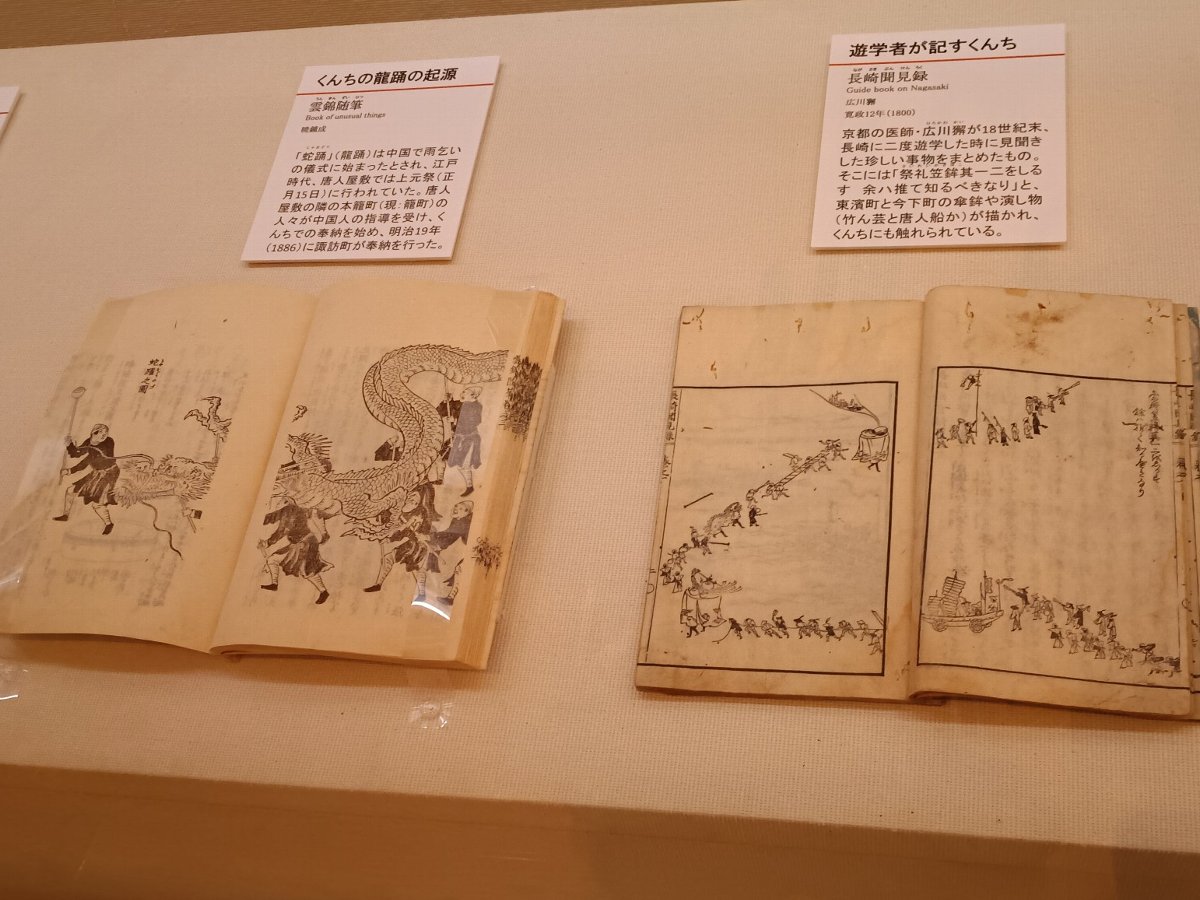 くんちの龍踊の起源
うん きん ずい ひつ
雲錦随筆
Book of unusual things
暁鐘成
じゃおどり
「蛇踊」(龍踊)は中国で雨乞い
の儀式に始まったとされ、江戸
時代、唐人屋敷では上元祭(正
月15日)に行われていた。唐人
屋敷の隣の本籠町(現:籠町)の
人々が中国人の指導を受け、く
んちでの奉納を始め、明治19年
(1886)に諏訪町が奉納を行った。
蛇躍之圖
遊学者が記すくんち
なが さき ぶん けん ろく
長崎聞見録
Guide book on Nagasaki
広川獬
寛政12年(1800)
ひろかわ かい
京都の医師・広川獬が18世紀末、
長崎に二度遊学した時に見聞き
した珍しい事物をまとめたもの。
そこには「祭礼笠鉾其一二をしる
す 余ハ推て知るべきなり」と、
東濱町と今下町の傘鉾や演し物
(竹ん芸と唐人船か)が描かれ、
くんちにも触れられている。
長崎聞見録